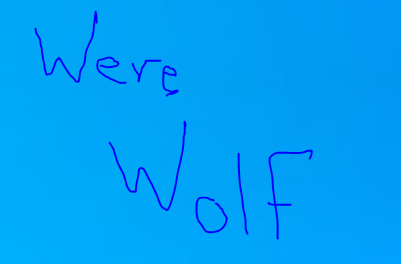 Were
Wolf